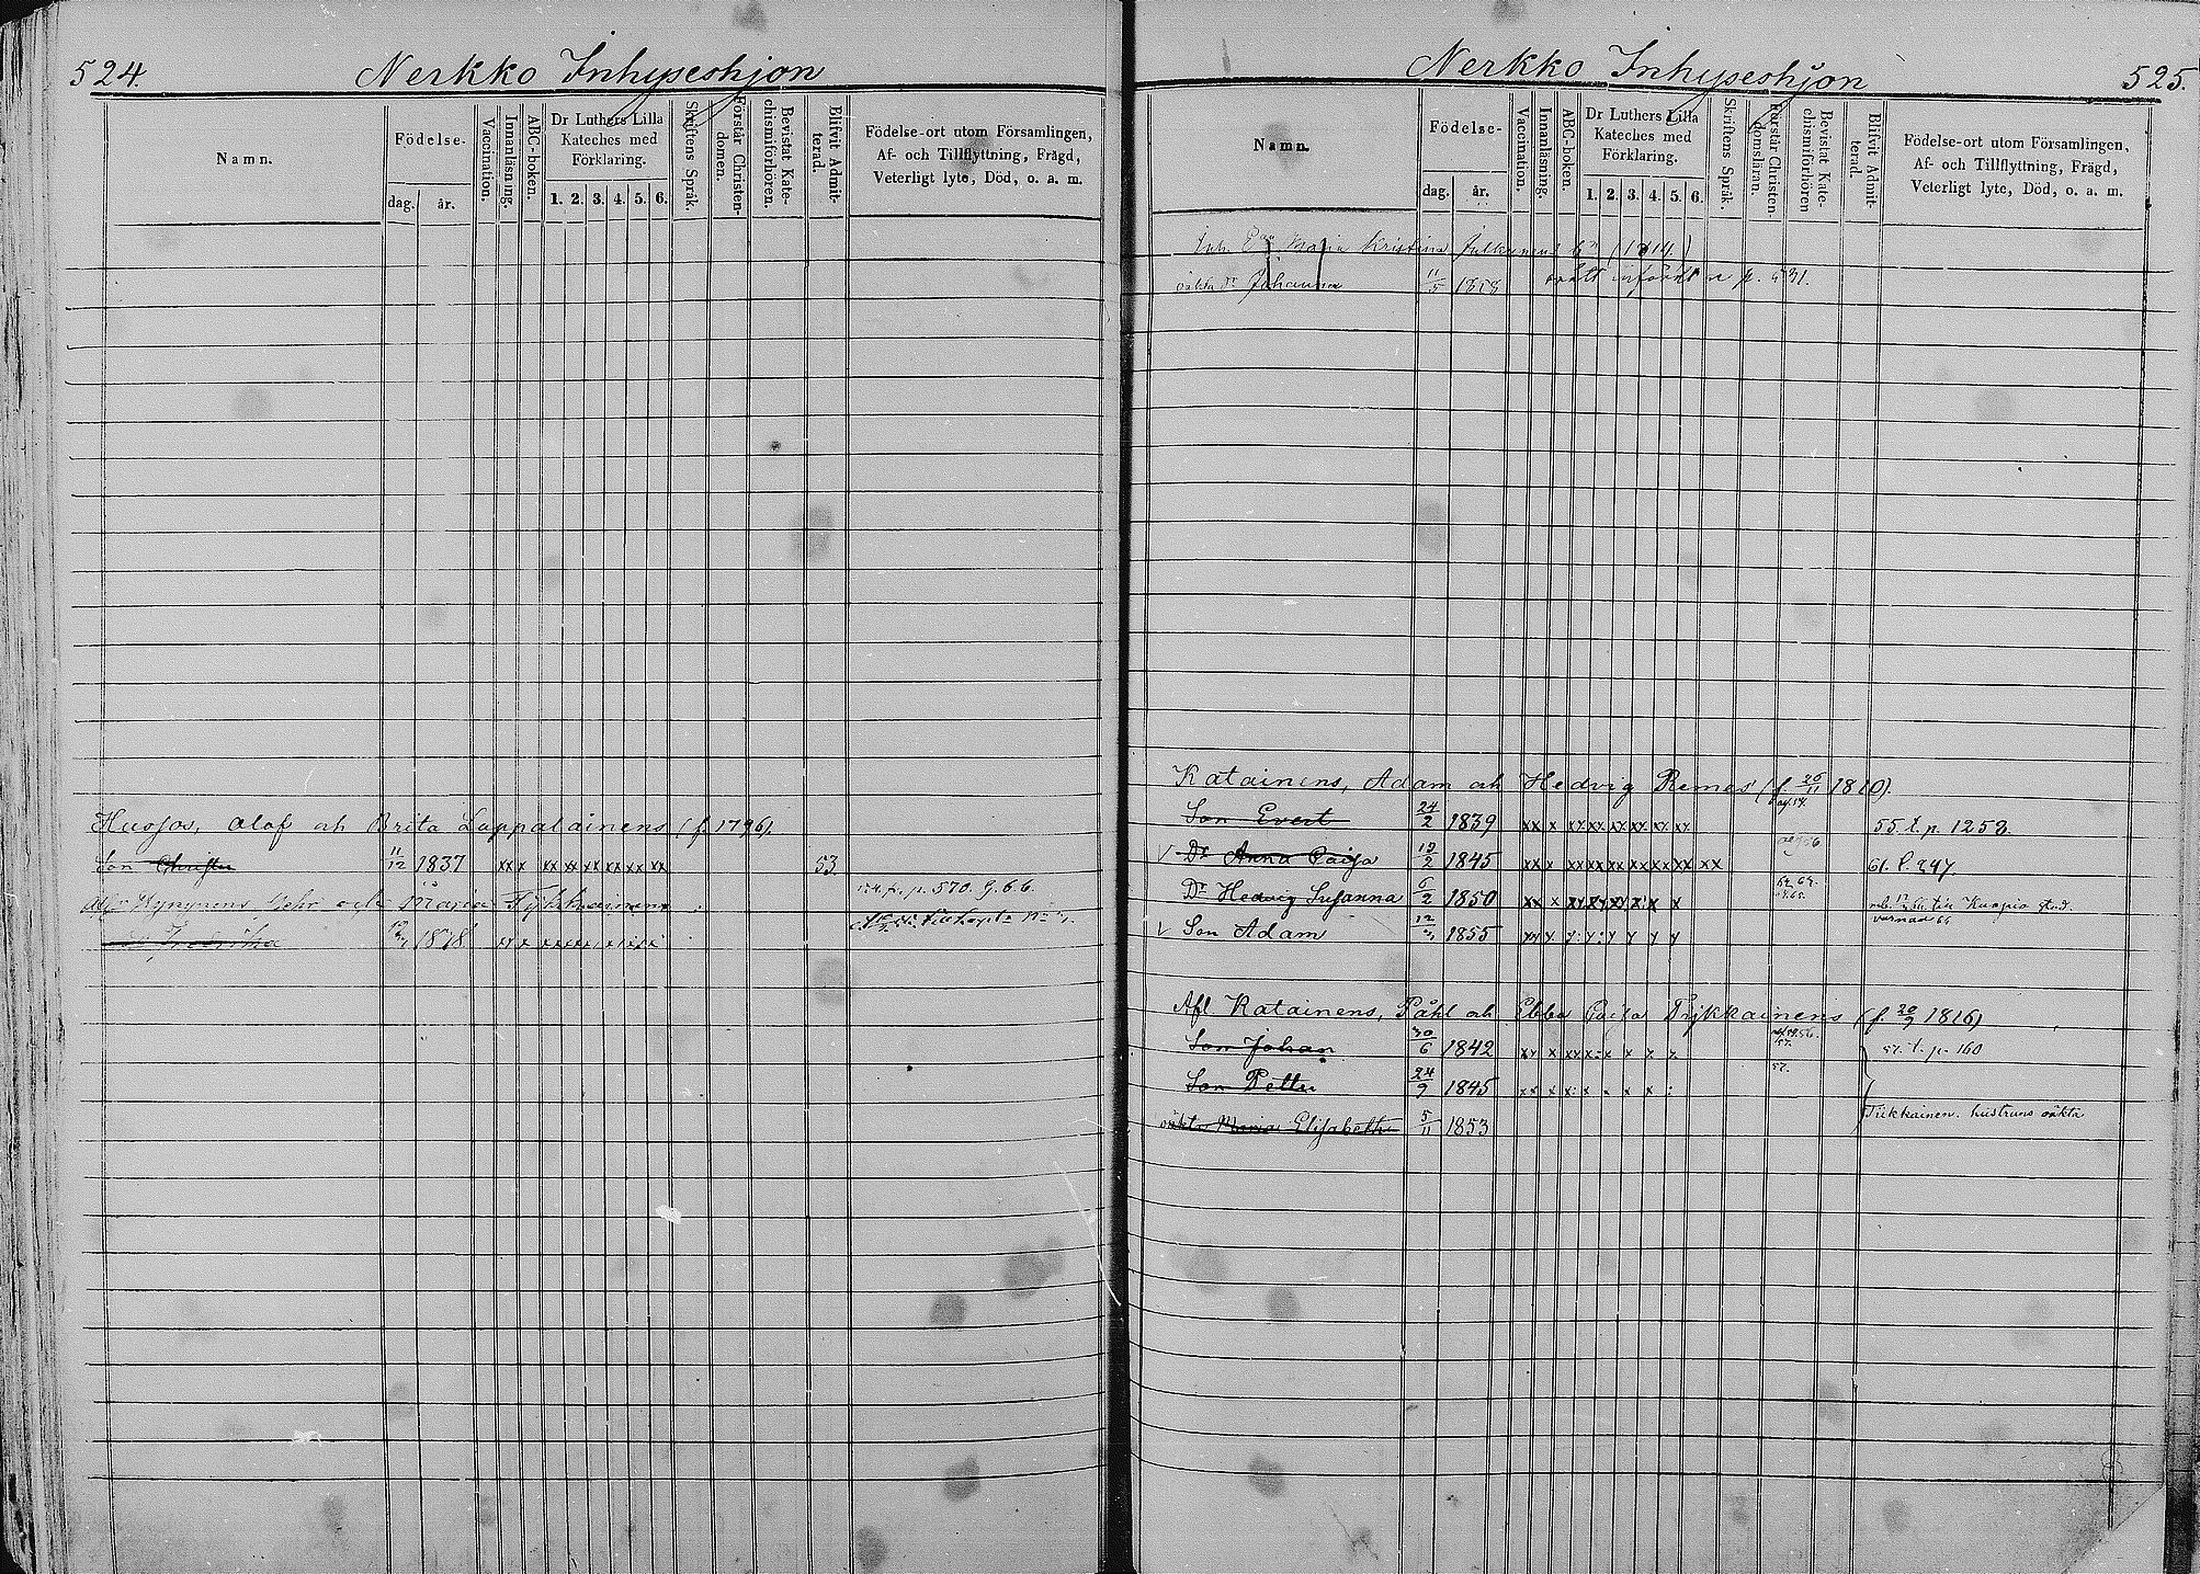 524.
Nerkko Inhyseshjon
Namn.
Födelse-
dag.
år.
Vaccination.
Innanläsning.
ABC-boken.
Dr Luthers Lilla
Kateches med
Förklaring.
1. 2. 3. 4. 5. 6.
Skriftens Språk.
Förstår Christen-
domen.
Bevistat Kate-
chismiförhören.
Blifvit Admit-
terad.
Födelse-ort utom Församlingen,
Af- och Tillflyttning, Frägd,
Veterligt lyte, Död, o. a. m.
Huojos, Olof och Brita Lappalainens (f. 1796).
Son Christer 11/12 1837 xx x xx xx xx xx xx xx 53.
Maria Tykkainens p. 570. g. 66.
Fredrika
Nerkko Inhyseshjon
525.
Namn.
Födelse-
dag.
år.
Vaccination.
Innanläsning.
ABC-boken.
Dr Luthers Lilla
Kateches med
Förklaring.
1. 2. 3. 4. 5. 6.
Skriftens Språk.
Förstår Christen-
domsläran.
Bevistat Kate-
chismiförhören
Blifvit Admit-
terad.
Födelse-ort utom Församlingen,
Af- och Tillflyttning, Frägd,
Veterligt lyte, Död, o. a. m.
Inh. Maria Kristina (1814.)
oäkta Dr Johanna 11/5 1858 införd p. 531.
Katainens, Adam och Hedvig Remes (f. 26/11 1810).
Son Evert 24/2 1839 xx x xx xx xx xx xx xx 55. t. p. 1253.
V Dr Anna Caisa 12/2 1845 xx x xx xx xx xx xx xx xx 61. p. 247.
Dr Hedvig Susanna 6/2 1850 xx x till Kuopio stad.
V Son Adam 1855
Afl Katainens, Påhl och Ebba Caisa Tykkainens (f. 20/9 1816)
Son Johan 30/6 1842 57. t. p. 160
Son Petter 24/9 1845 57.
oäkta Maria Elisabetha 5/11 1853 Tikkainen. hustruns oäkta